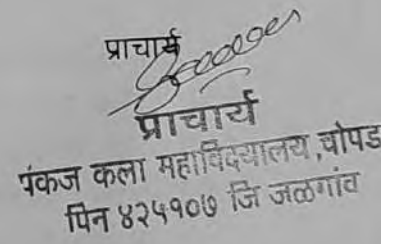 प्राचार्य
प्राचार्य
पंकज कला महाविदयालय ,चोपड
पिन ४२५१०७ जि जळगांव